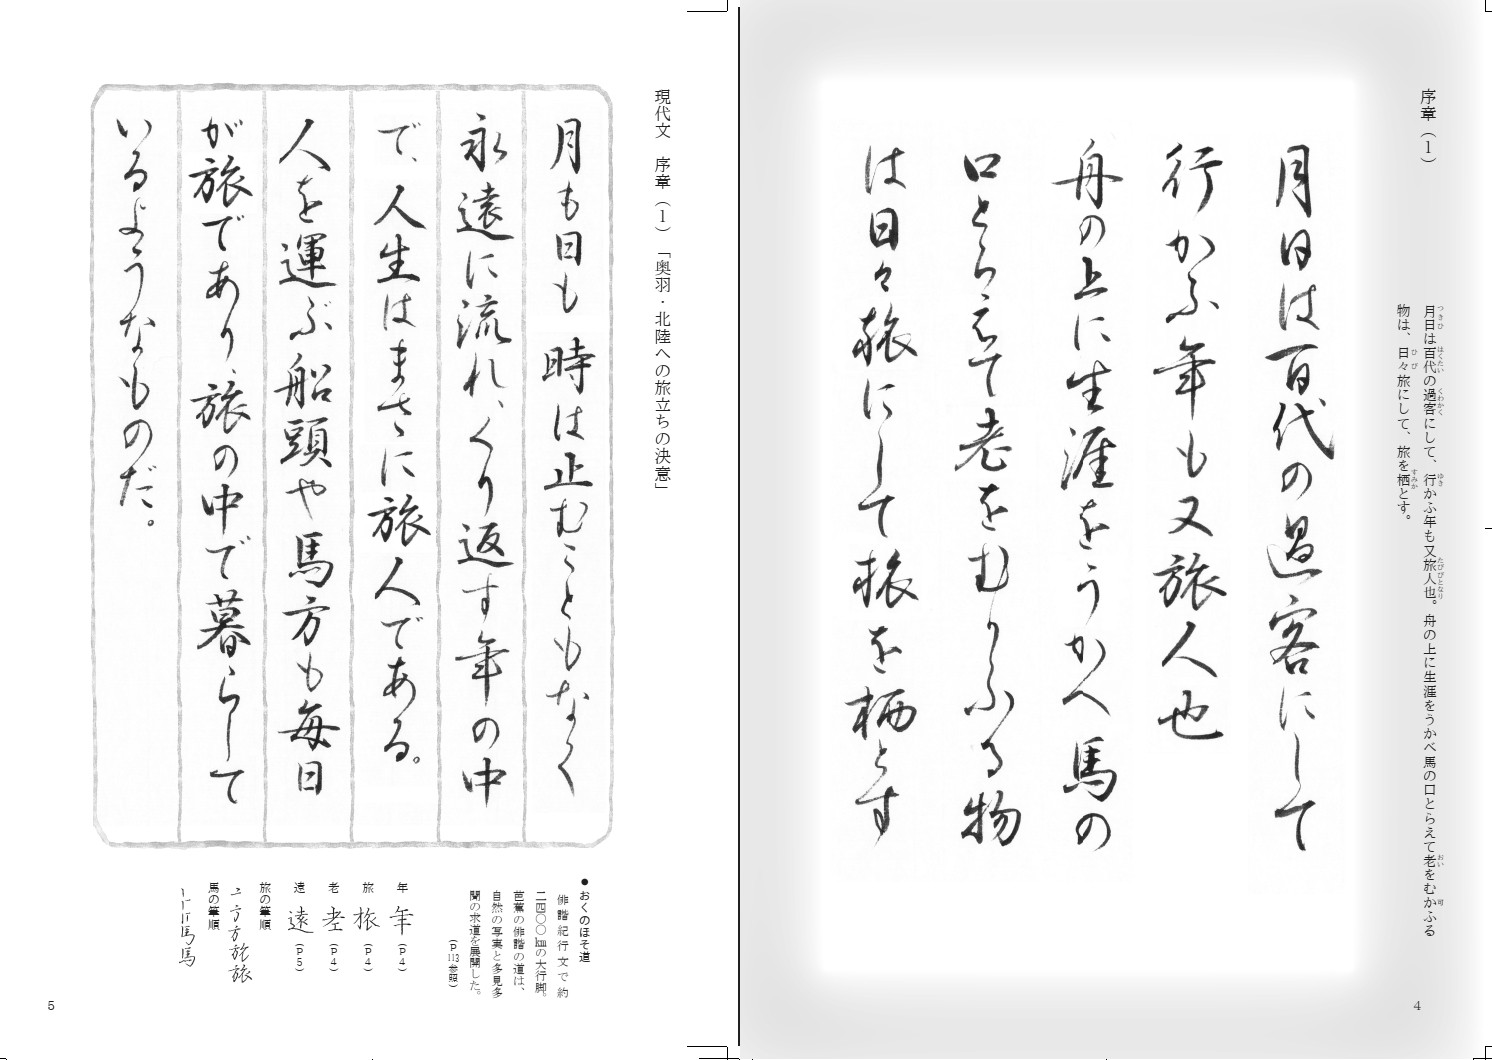 序章（1）
月日は百代の過客にして、行かふ年も又旅人也。舟の上に生涯をうかべ馬の口とらえて老をむかふる
物は、日々旅にして、旅を栖とす。
つきひ
はくたい
くわかく
ゆき
たびびとなり
おい
ひび
すみか
月日は百代の過客にして
行かふ年も又旅人也
舟の上に生涯をうかへ馬の
口とらえて老をむかふる物
は日々旅にして旅を栖とす
4
現代文　序章（1）「奥羽・北陸への旅立ちの決意」
月も日も 時は止むこともなく
永遠に流れ、くり返す年の中
で、人生はまさに旅人である。
人を運ぶ、船頭や馬方も毎日
が旅であり、旅の中で暮らして
いるようなものだ。
●おくのほそ道
俳諧紀行文で約
二四〇〇㎞の大行脚。
芭蕉の俳諧の道は、
自然の写実と多見多
聞の求道を展開した。
（P113参照）
年 年（P4）
旅 旅（P4）
老 老（P4）
遠 遠（P5）
旅の筆順
馬の筆順
5